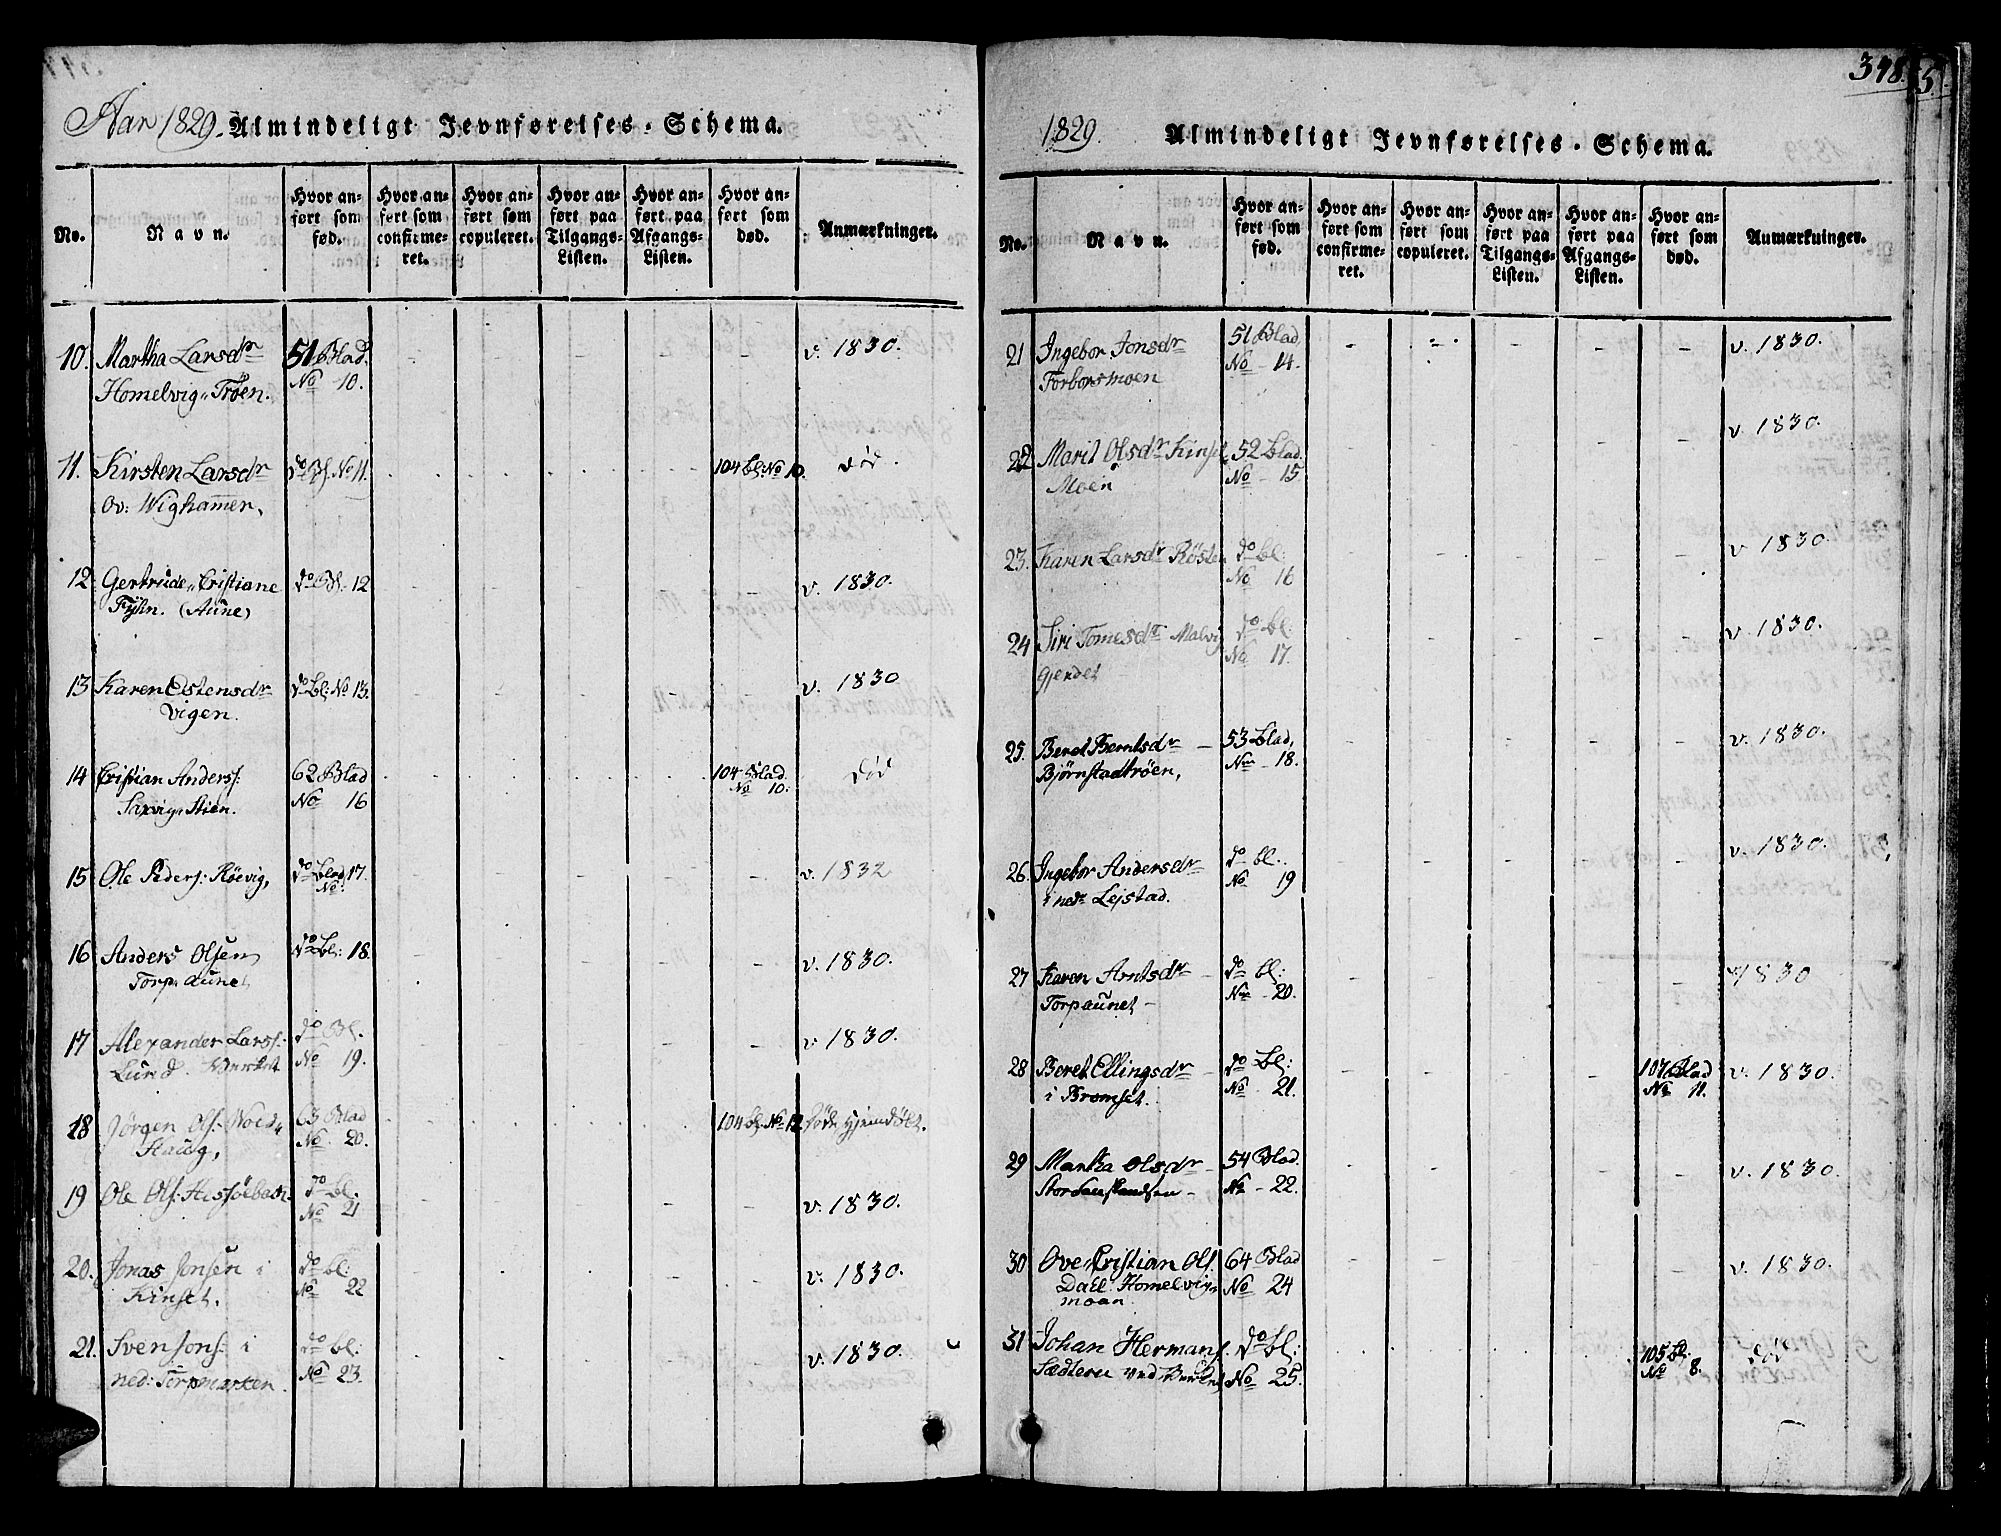 Aar 1829. Almindeligt Jevnførelses-Schema.
No.
Navn.
Hvor anført som fød.
Hvor anført som confirmeret.
Hvor anført som copuleret.
Hvor anført paa Tilgangs-Listen.
Hvor anført paa Afgangs-Listen.
Hvor anført som død.
Anmærkninger.
10. Martha Larsdr 51 Blad. v. 1830.
Homelvig-Trøen. No 10.
11. Kirsten Larsdr do Bl. No 11. 104 bl: No 10. død.
Ov: Wighamer,
12 Gertrude-Cristiane do Bl. 12 v. 1830.
(Aune)
13 Karen Estensdr do bl: No 13. v. 1830
Vigen.
14 Cristian Anders: 62 Blad 104 Blad død
Saxvig-Stien. No 16 No 10.
15 Ole Peders: Røevig, do Blad 17. v. 1832
No
16 Anders Olsen do bl: 18. v. 1830.
Torp-aunet
17 Alexander Lars: do Bl. v 1830.
Lund No 19.
18 Jørgen Ols: 63 Blad 104 bl: No 12 Hjemdøbt.
Haug, No 20.
19 Ole Ols: do bl. v. 1830.
No 21
20. Jonas Jonsen i do bl: v. 1830.
Kinset. No 22
21. Sven Jons: i do bl: v. 1830.
ned: Torpmarken No 23.
348.
5
1829. Almindeligt Jevnførelses-Schema.
No.
Navn.
Hvor anført som fød.
Hvor anført som confirmeret.
Hvor anført som copuleret.
Hvor anført paa Tilgangs-Listen.
Hvor anført paa Afgangs-Listen.
Hvor anført som død.
Anmærkninger.
21 Ingebor Jonsdr 51 Blad v. 1830.
Forborsmoen No 14.
22 Marit Olsdr Kinset 52 Blad. v 1830.
Moen No - 15
23. Karen Larsdr Røsten do bl: v 1830.
No 16
24 Siri Tomesdr Malvig do bl: v. 1830.
Gjerdet No 17.
25. Beret Berntsdr - 53 Blad, v. 1830.
Bjørnstadtrøen, No - 18.
26. Ingebor Andersdr do bl. v. 1830.
i nedr Lejstad. No 19
27 Karen Arntsdr - do bl: v 1830
Torpaunet - No - 20.
28 Beret Ellingsdr do bl: 107 Blad v. 1830.
i Bromset. No - 21. No 11.
29 Martha Olsdr - 54 Blad. v. 1830.
No - 22.
30 Ove-Cristian Ols. 64 Blad v. 1830.
Dall Homelvig- No 24
moan.
31 Johan Hermans. do bl: 105 bl: død
ved No 25. No 8.